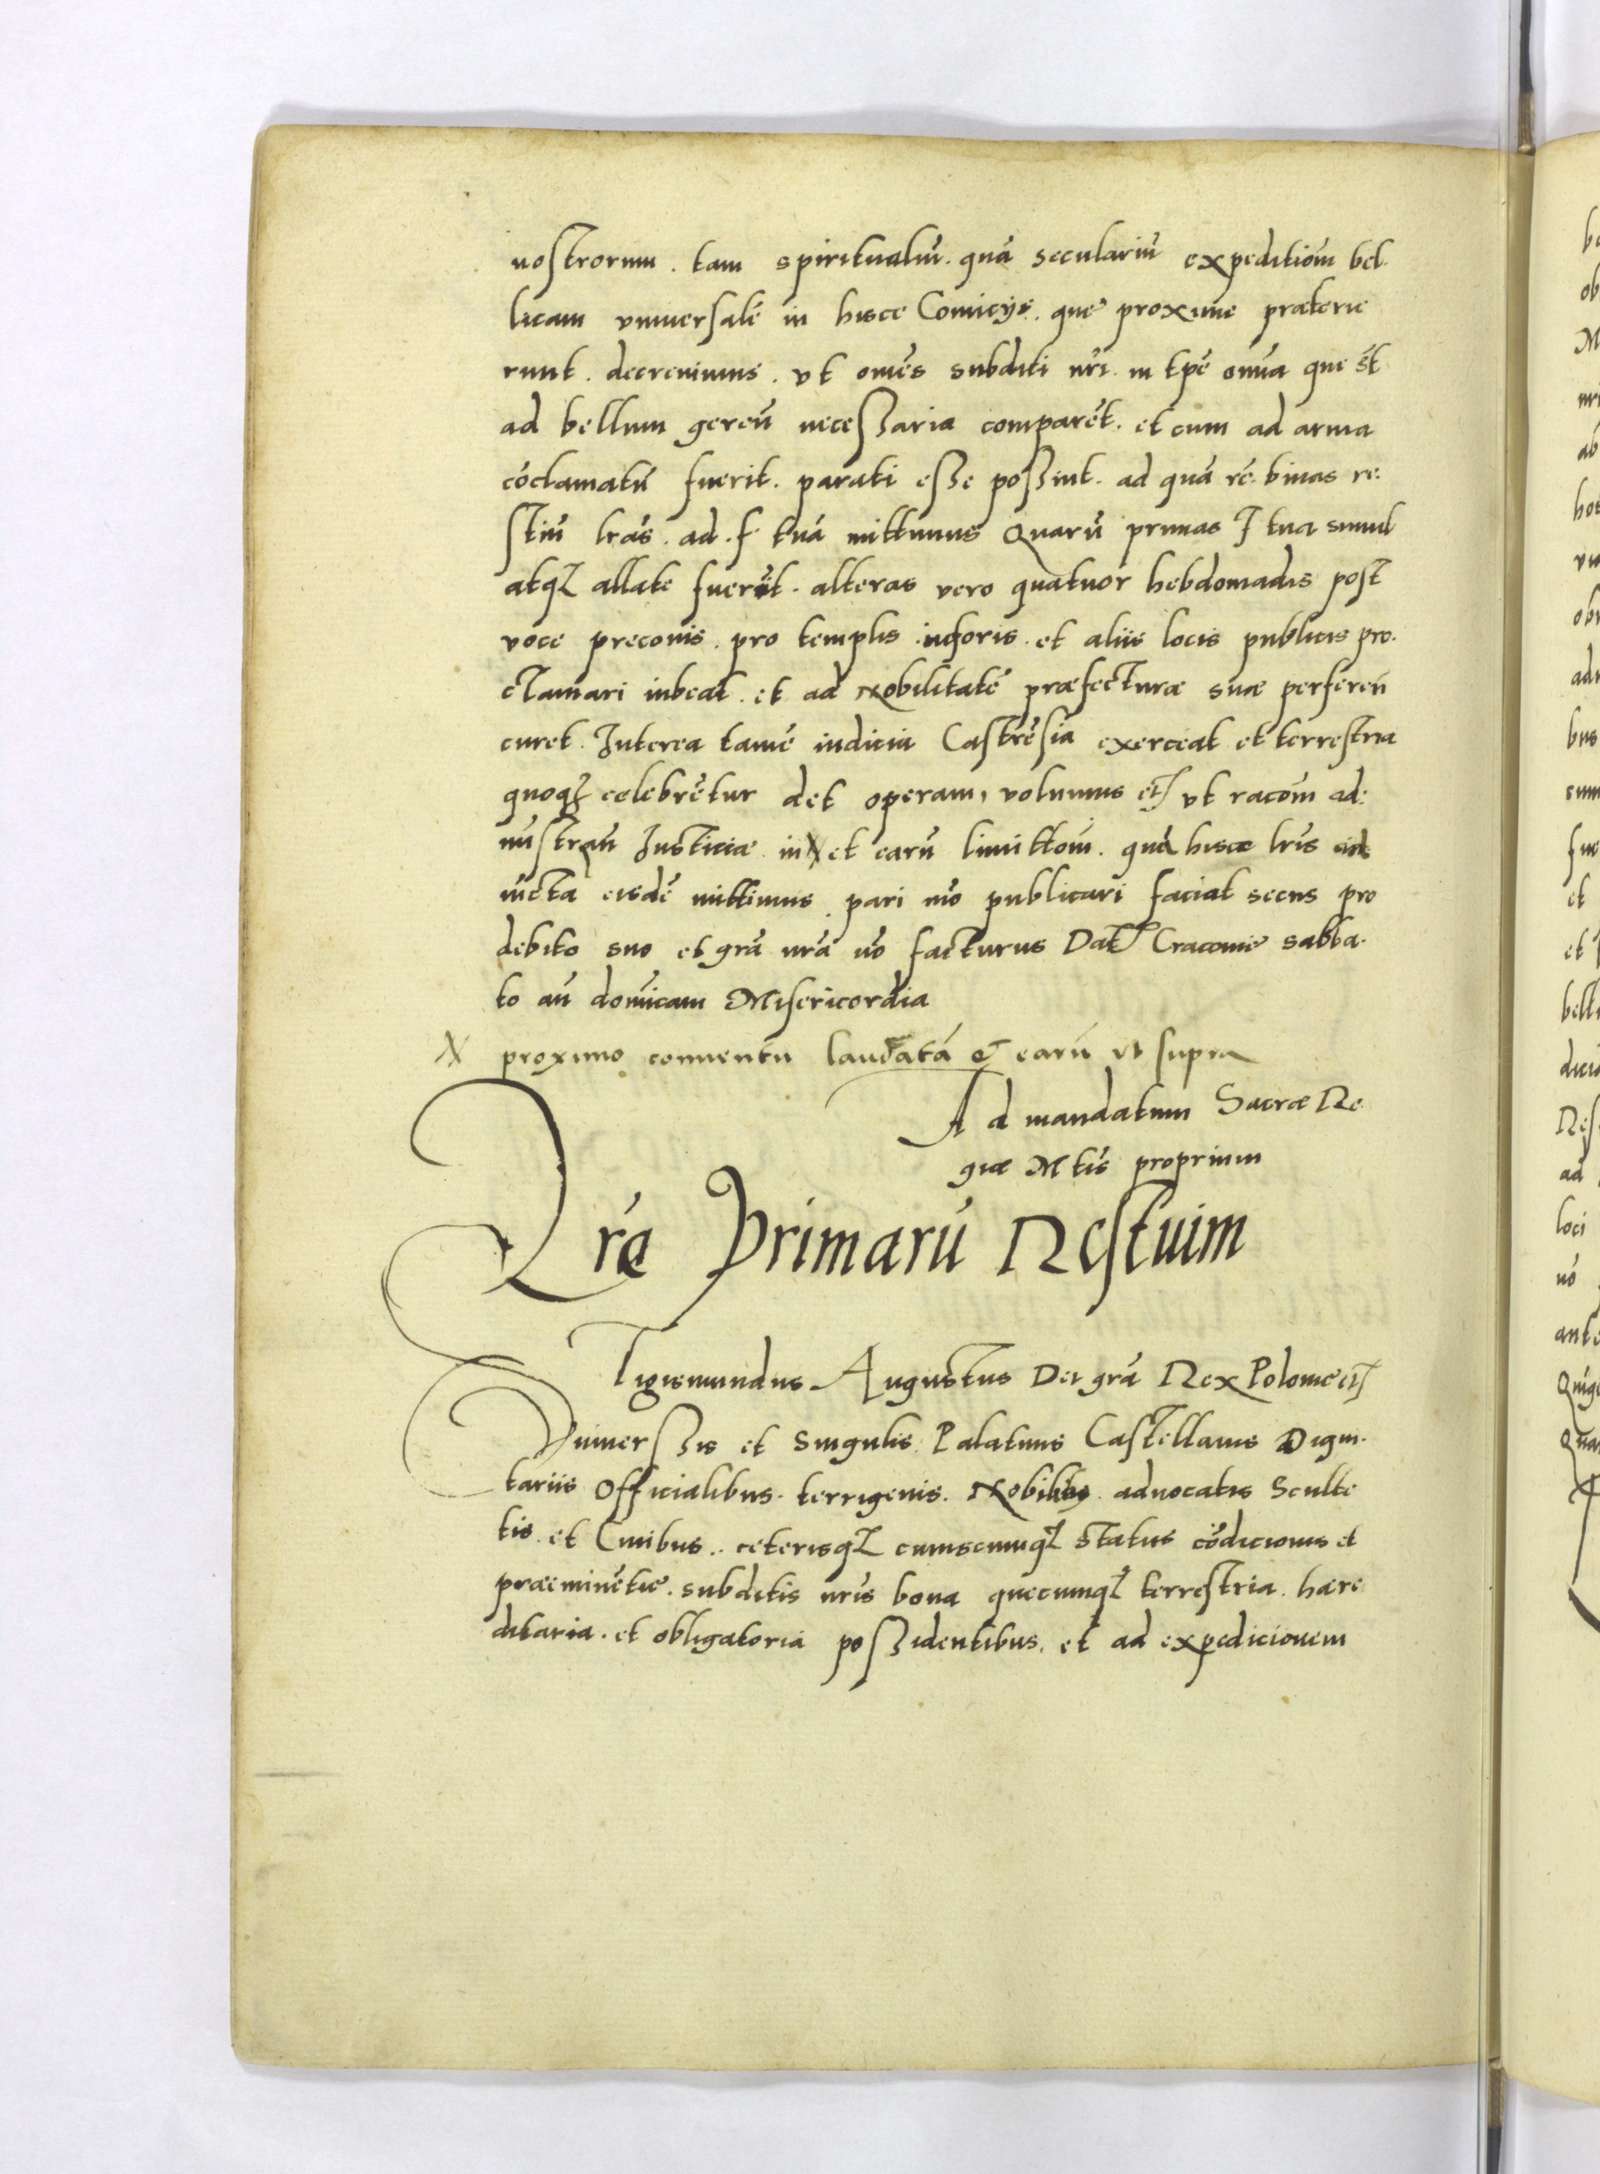 nostrorum . tam spiritualiū . quā seculariū expeditiōm bel
licam vniuersalē in hisce Comicijs . que proxime præterie
runt . decreuimus . vt omēs subditi nr̄i . in tpē omīa que st̄
ad bellum gereñ necessaria comparēt . et cum ad arma
cōclamatū fuerit . parati esse possint . ad quā rē binas re
stiū lrās . ad . f tuā mittimus Quarū primas f tua simul
atq3 allate fuerīt . alteras vero quatuor hebdomadis post
voce preconis . pro templis . in foris . et aliis locis publicis pro
clamari iubeat . et ad Nobilitatē præfecturæ suæ perferen̄
curet . Interea tamē iudicia Castrēsia exerceat et terrestria
quoq3 celebrētur det operam, volumus et3 vt racōm ad
mīstrañ Iusticiæ in X et earū limittōm . quā hisce lrīs
iūcta eisdē mittimus . pari mō publicari faciat secus pro
debito suo et grā nrā nō facturus Dat̄ Cracoviæ sabba
to añ domīcam Misericordia
X proximo conuentu laudatā et earū vt supra
Ad mandatum Sacræ Re
giæ Mtis proprium
Lrē Primarū Restuim
Sigismundus Augustus Dei grā Rex Polonie et3
Vniuersis et Singulis Palatinis Castellanis Digni
tariis Officialibus . terrigenis . Nobilibus . aduocatis Sculte
tis . et Ciuibus . ceterisq3 cuiuscumq3 status cōdicionis et
præeminētie . subditis nrīs bona quecumq3 terrestria . hære
ditaria . et obligatoria possidentibus . et ad expedicionem